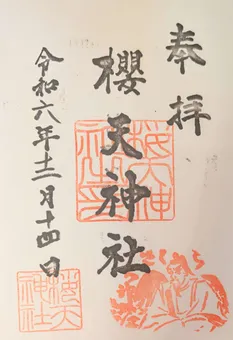 奉拝
櫻天神社
令和六年十二月十四日
桜天神社印
桜天神社